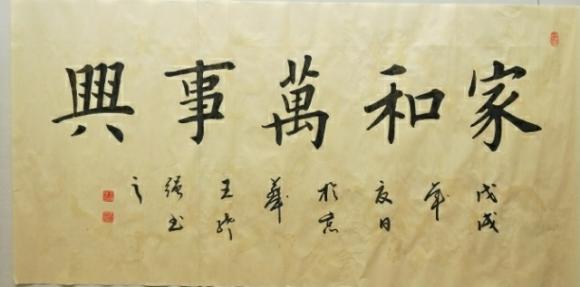 家和萬事興
戊戌年夏日於京華王强书